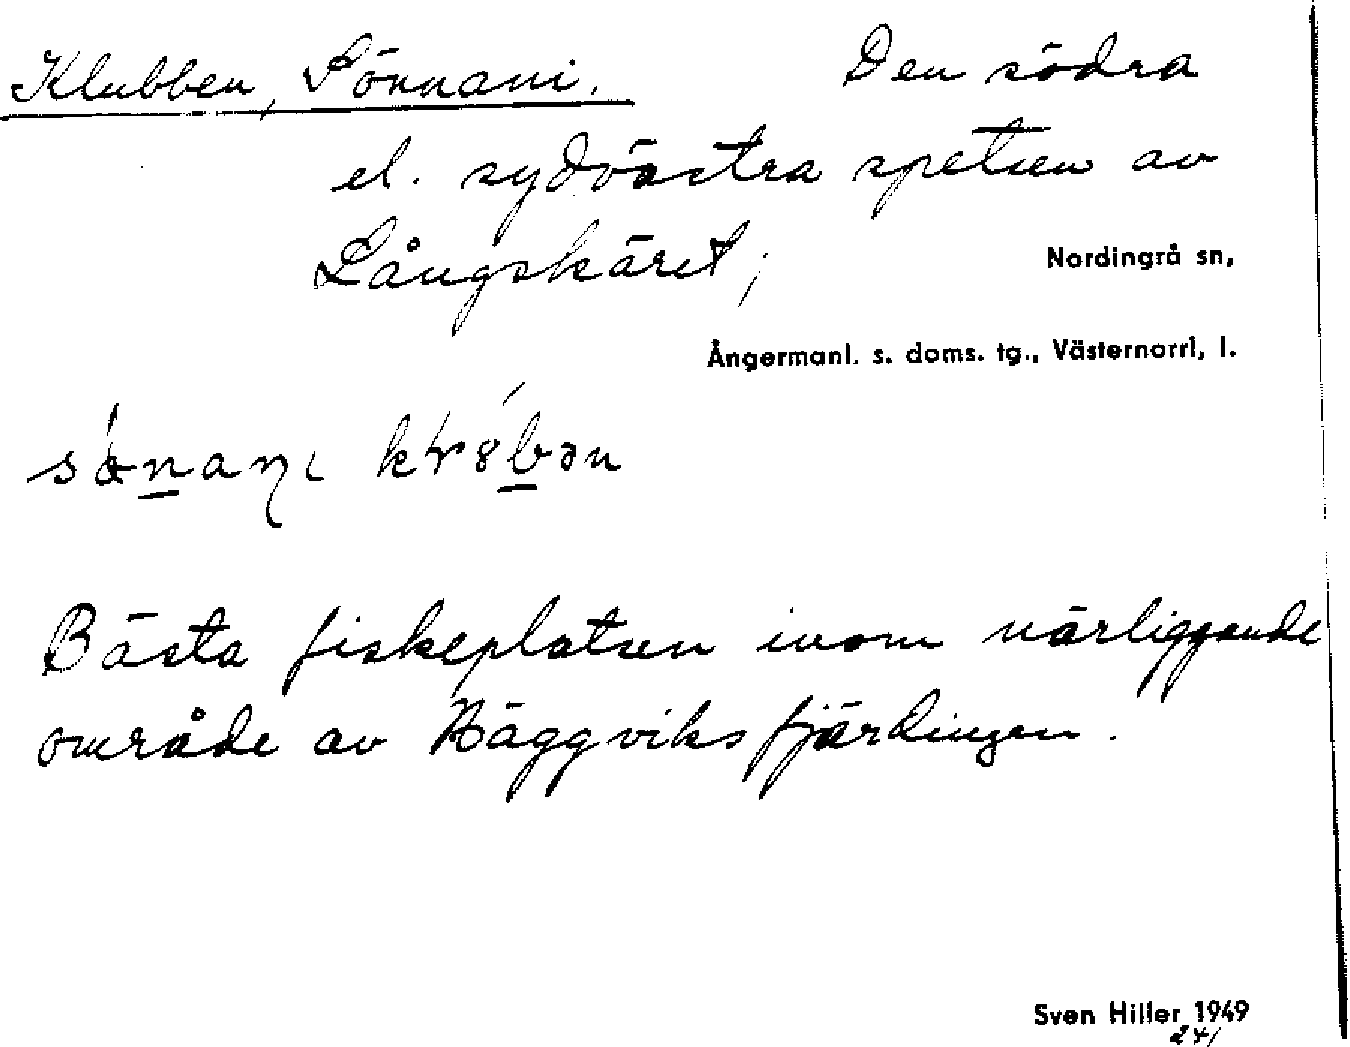 Klubben, Sönnani. Den södra
el. sydvästra spetsen av
Långskäret;
Nordingrå sn,
Ångermanl. s. doms. tg., Västernorrl. l.
Bästa fiskeplatsen inom närliggande
område av Häggviksfjärdingen.
Sven Hiller 1949
241